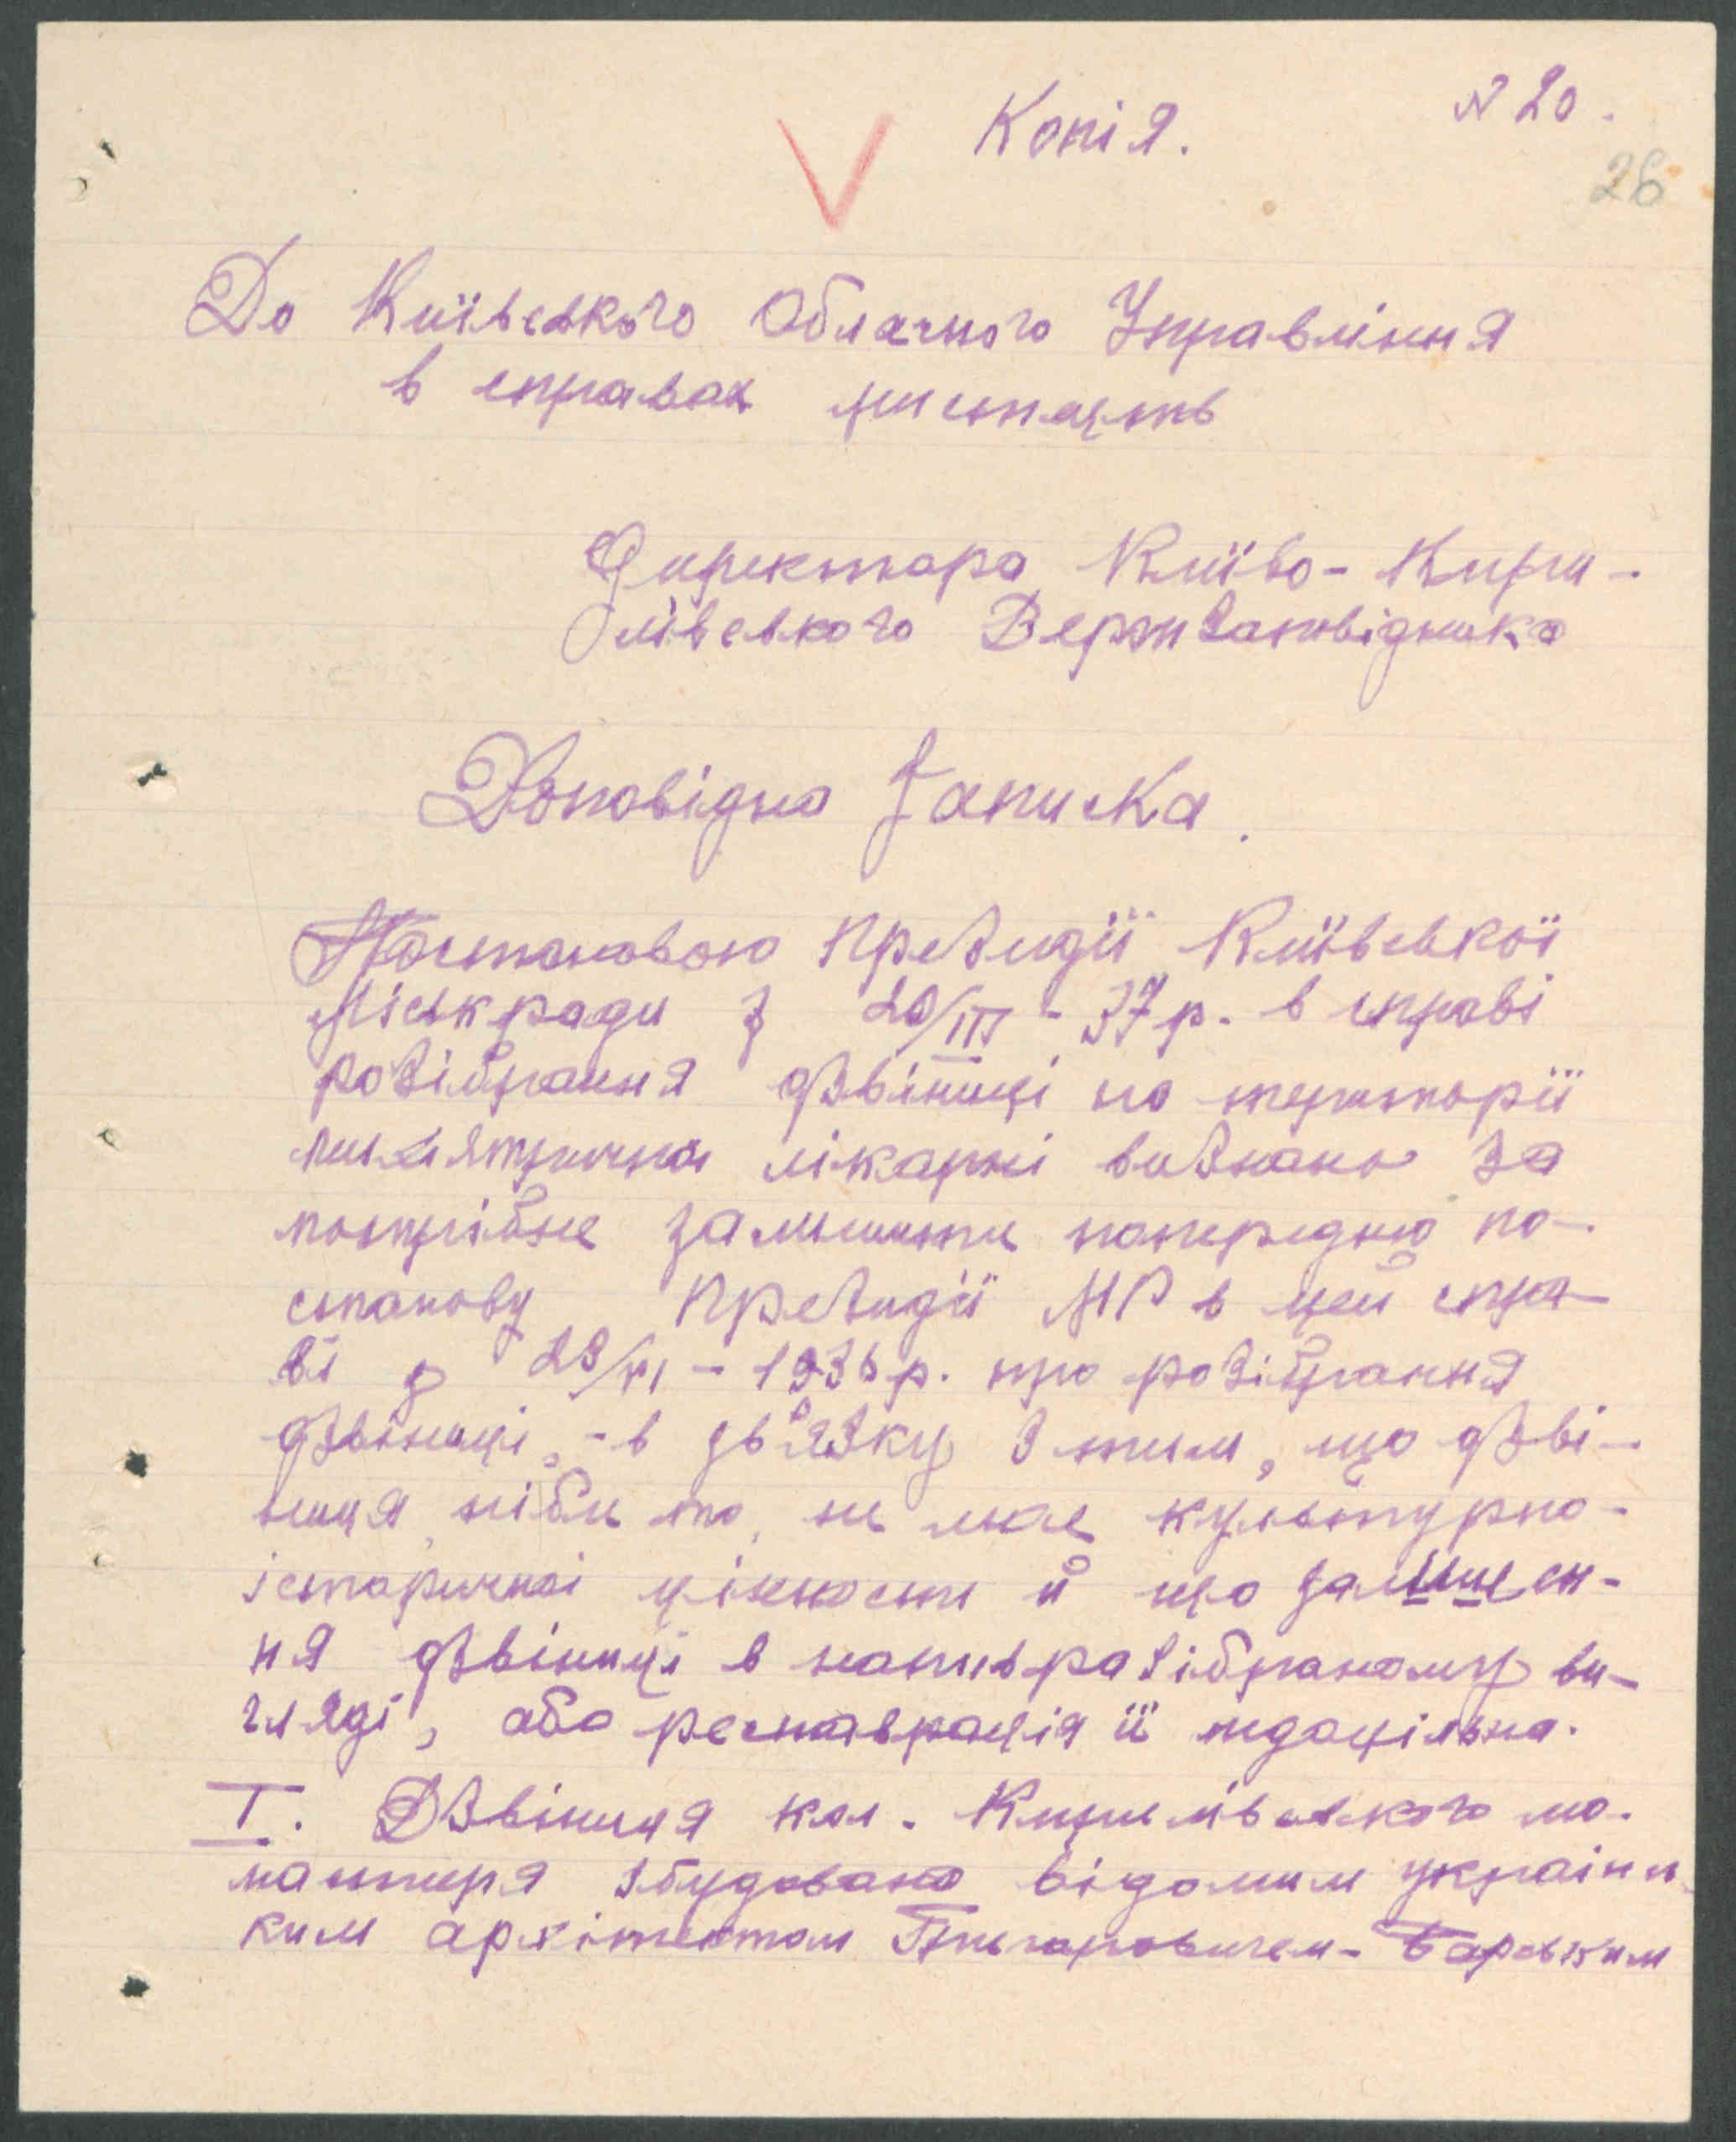 Копія.
N 20.
26
До Київського Обласного Управління
в справах мистецтв
Директора Київо-Кири-
лівського Держ Заповідника
Доповідна Записка.
Постановою Президії Київської
Міськради з 20/III - 37 р. в справі
розібрання дзвіниці на території
психіатричної лікарні визнано за
потрібне залишити попередню по-
станову Президії МР в цей спра-
ві з 29/VI - 1936 р. про розібрання
дзвіниці, - в зв'язку з тим, що дзві-
ниця, ніби то, не має культурно-
історичної цінности й що залишен-
ня дзвіниці в напивразібраному ви-
гляді, або реставрація її недоцільна.
I. Дзвіниця кол. Кирилівського мо-
настиря збудована відомим україн
ким архітектом Григоровичем-Барським